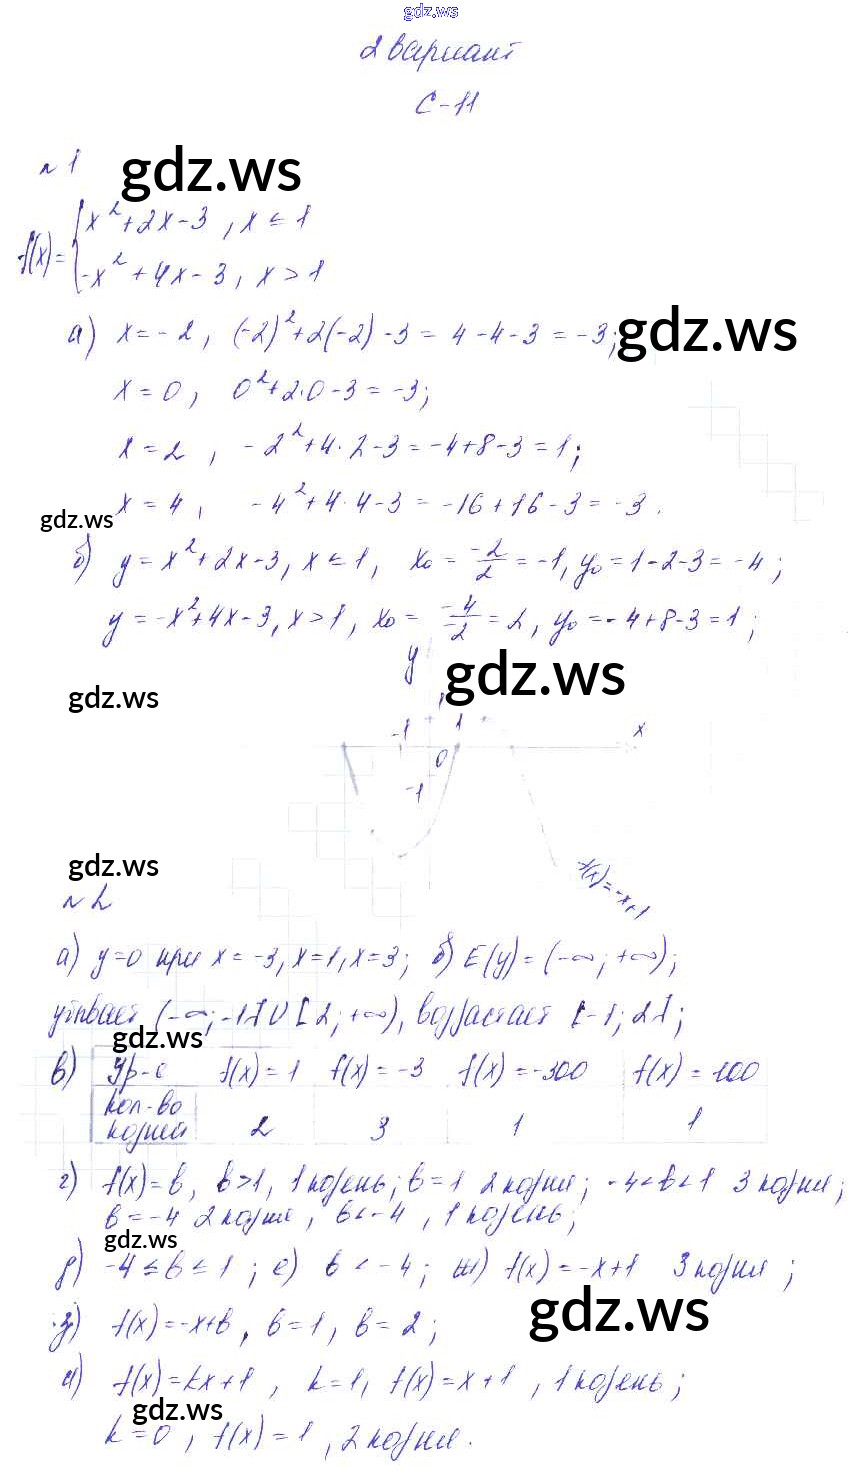 gdz.ws
2 вариант
С-11
№1 gdz.ws
f(x)= { x²+2x-3, x≤1
-x²+4x-3, x>1
а) x=-2, (-2)²+2(-2)-3=4-4-3=-3; gdz.ws
x=0, 0²+2·0-3=-3;
x=2, -2²+4·2-3=-4+8-3=1;
x=4, -4²+4·4-3=-16+16-3=-3.
gdz.ws
б) y=x²+2x-3, x≤1, x₀=-2/2=-1, y₀=1-2-3=-4;
y=-x²+4x-3, x>1, x₀=-4/-2=2, y₀=-4+8-3=1;
y gdz.ws
gdz.ws
-1 1 x
0
-1
gdz.ws
f(x)=-x+1
№2
а) y=0 при x=-3, x=1, x=3; б) E(y)=(-∞;+∞);
убывает (-∞;-1]U[2;+∞), возрастает [-1;2];
gdz.ws
в) Ур-е f(x)=1 f(x)=-3 f(x)=-300 f(x)=100
кол-во
корней 2 3 1 1
г) f(x)=b, b>1, 1 корень; b=1 2 корня; -4<b<1 3 корня;
b=-4 2 корня, b<-4, 1 корень;
gdz.ws
д) -4≤b≤1; е) b<-4; ж) f(x)=-x+1 3 корня;
gdz.ws
з) f(x)=-x+b, b=1, b=2;
и) f(x)=kx+1, k=1, f(x)=x+1, 1 корень;
gdz.ws
k=0, f(x)=1, 2 корня.